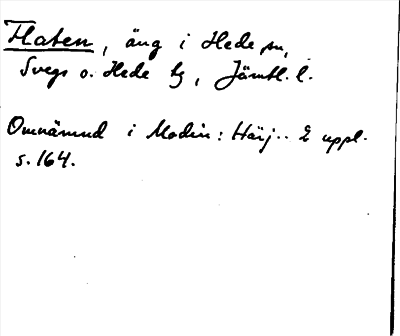 Flaten, äng i Hede sn,
Svegs o. Hede tg, Jämtl. l.
Omnämnd i Modin: Härj.. 2 uppl.
s. 164.